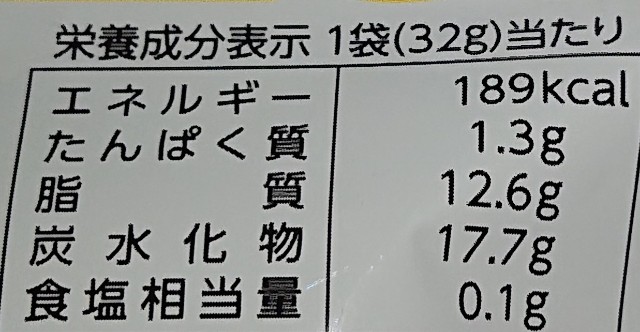 栄養成分表示 1袋(32g)当たり
エネルギー 189kcal
たんぱく質 1.3g
脂質 12.6g
炭水化物 17.7g
食塩相当量 0.1g